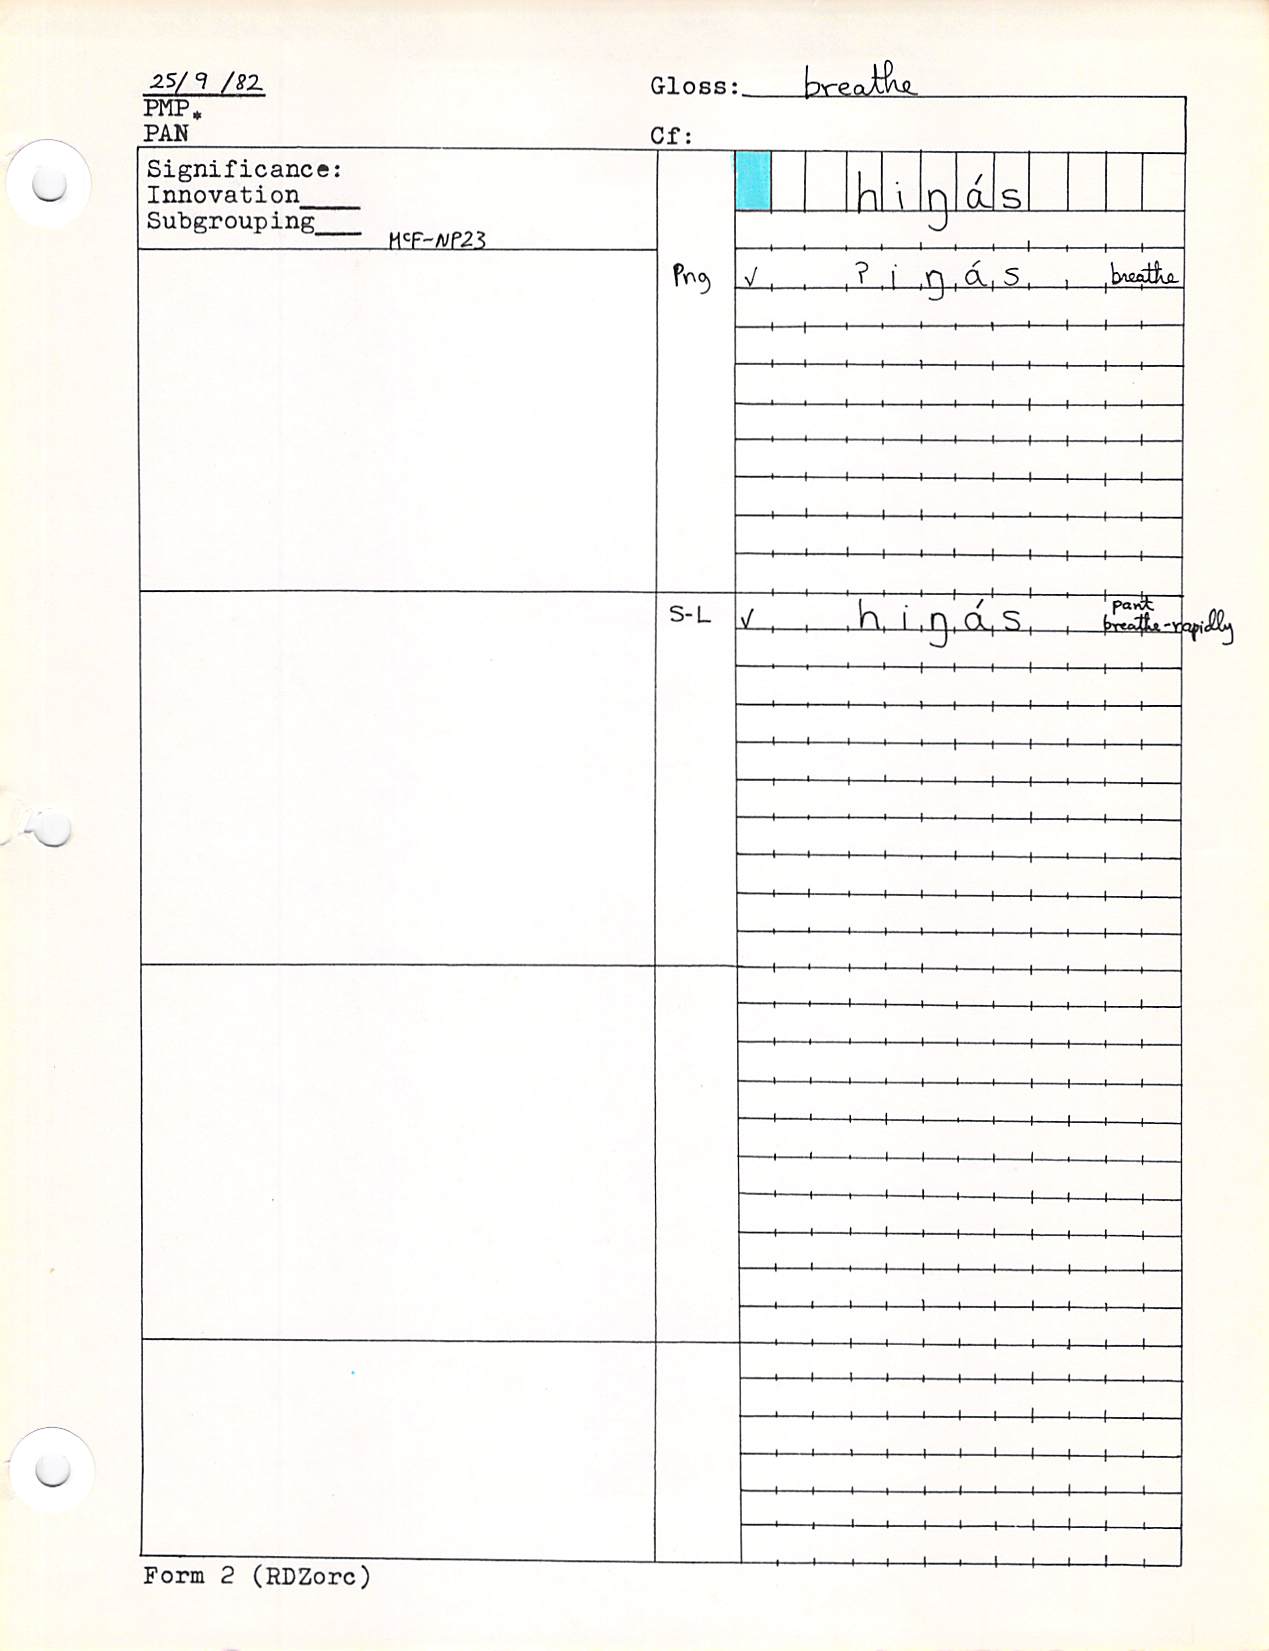 25/9/82
Gloss: breathe
PMP*
PAN
Cf:
Significance:
Innovation____
Subgrouping___
McF-NP23
hiŋás
Png ✓ ʔiŋás breathe
S-L ✓ hiŋás pant
breathe-rapidly
Form 2 (RDZorc)